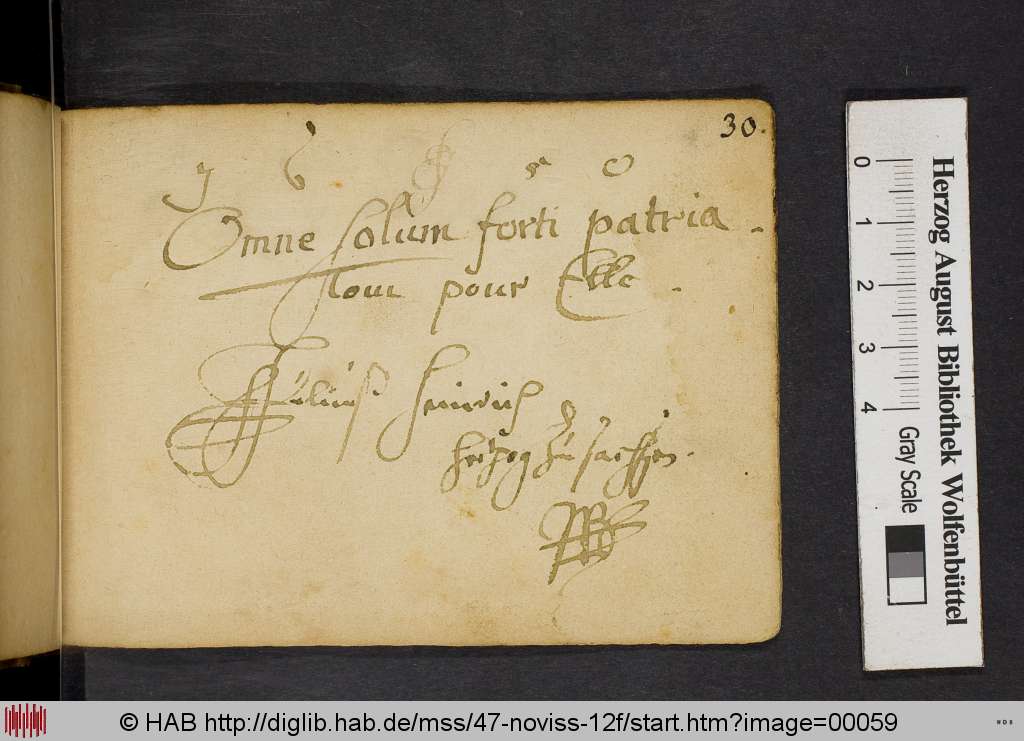 30.
1 6 5 0
Omne solum forti patria.
Tout pour Elle.
Julius Heinrich
Hertzog zu Sachssen.
Herzog August Bibliothek Wolfenbüttel
0 1 2 3 4 Gray Scale
© HAB http://diglib.hab.de/mss/47-noviss-12f/start.htm?image=00059